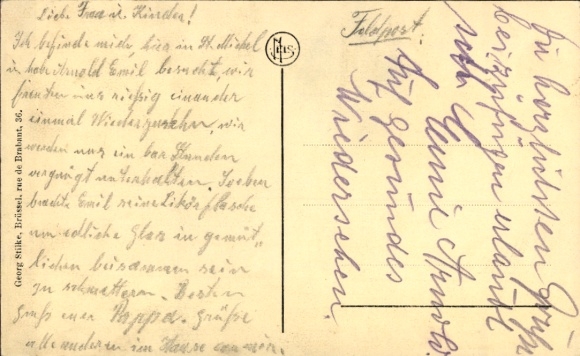 Liebe Frau u. Kinder!
Ich befinde mich hier in St. Michel
u. habe Arnold Emil besucht, wir
freuten uns riesig einander
einmal Wiederzusehn, wir
werden uns ein bar Stunden
vergnügt unterhalten. Soeben
brachte Emil seine Likörflasche
um edliche Glas in gemüt„
lichen beisammen sein
zu schmettern. Besten
Gruß euer Pappa. Grüße
alle andern im Hause
Georg Stilke, Brüssel, rue de Brabant, 36.
Feldpost.
Die herzlichsten Grüße
beizufügen erlaubt
sich Emil Arnold
Auf gesundes
Wiedersehen.